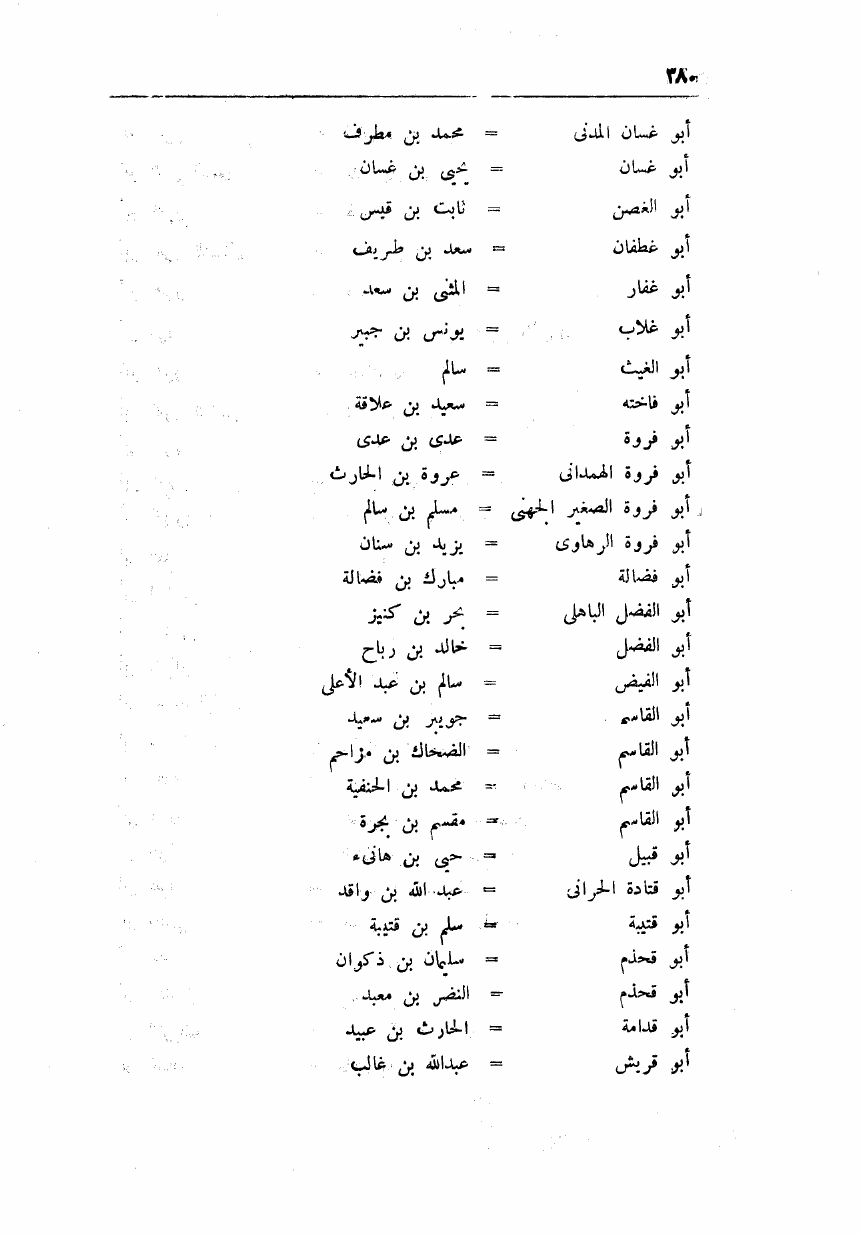 ٣٨٠
أبو غسان المدنى = محمد بن مطرف
أبو غسان = يحيى بن غسان
أبو الغصن = ثابت بن قيس
أبو غطفان = سعد بن طريف
أبو غفار = المثنى بن سعد
أبو غلاب = يونس بن جبير
أبو الغيث = سالم
أبو فاخته = سعيد بن علاقة
أبو فروة = عدى بن عدى
أبو فروة الهمدانى = عروة بن الحارث
أبو فروة الصغير الجهنى = مسلم بن سالم
أبو فروة الرهاوى = يزيد بن سنان
أبو فضالة = مبارك بن فضالة
أبو الفضل الباهلى = بحر بن كنيز
أبو الفضل = خالد بن رباح
أبو الفيض = سالم بن عبد الأعلى
أبو القاسم = جويبر بن سعيد
أبو القاسم = الضحاك بن مزاحم
أبو القاسم = محمد بن الحنفية
أبو القاسم = مقسم بن بجرة
أبو قبيل = حيى بن هانىء
أبو قتادة الحرانى = عبد الله بن واقد
أبو قتيبة = سلم بن قتيبة
أبو قحذم = سليمان بن ذكوان
أبو قحذم = النضر بن معبد
أبو قدامة = الحارث بن عبيد
أبو قريش = عبدالله بن غالب